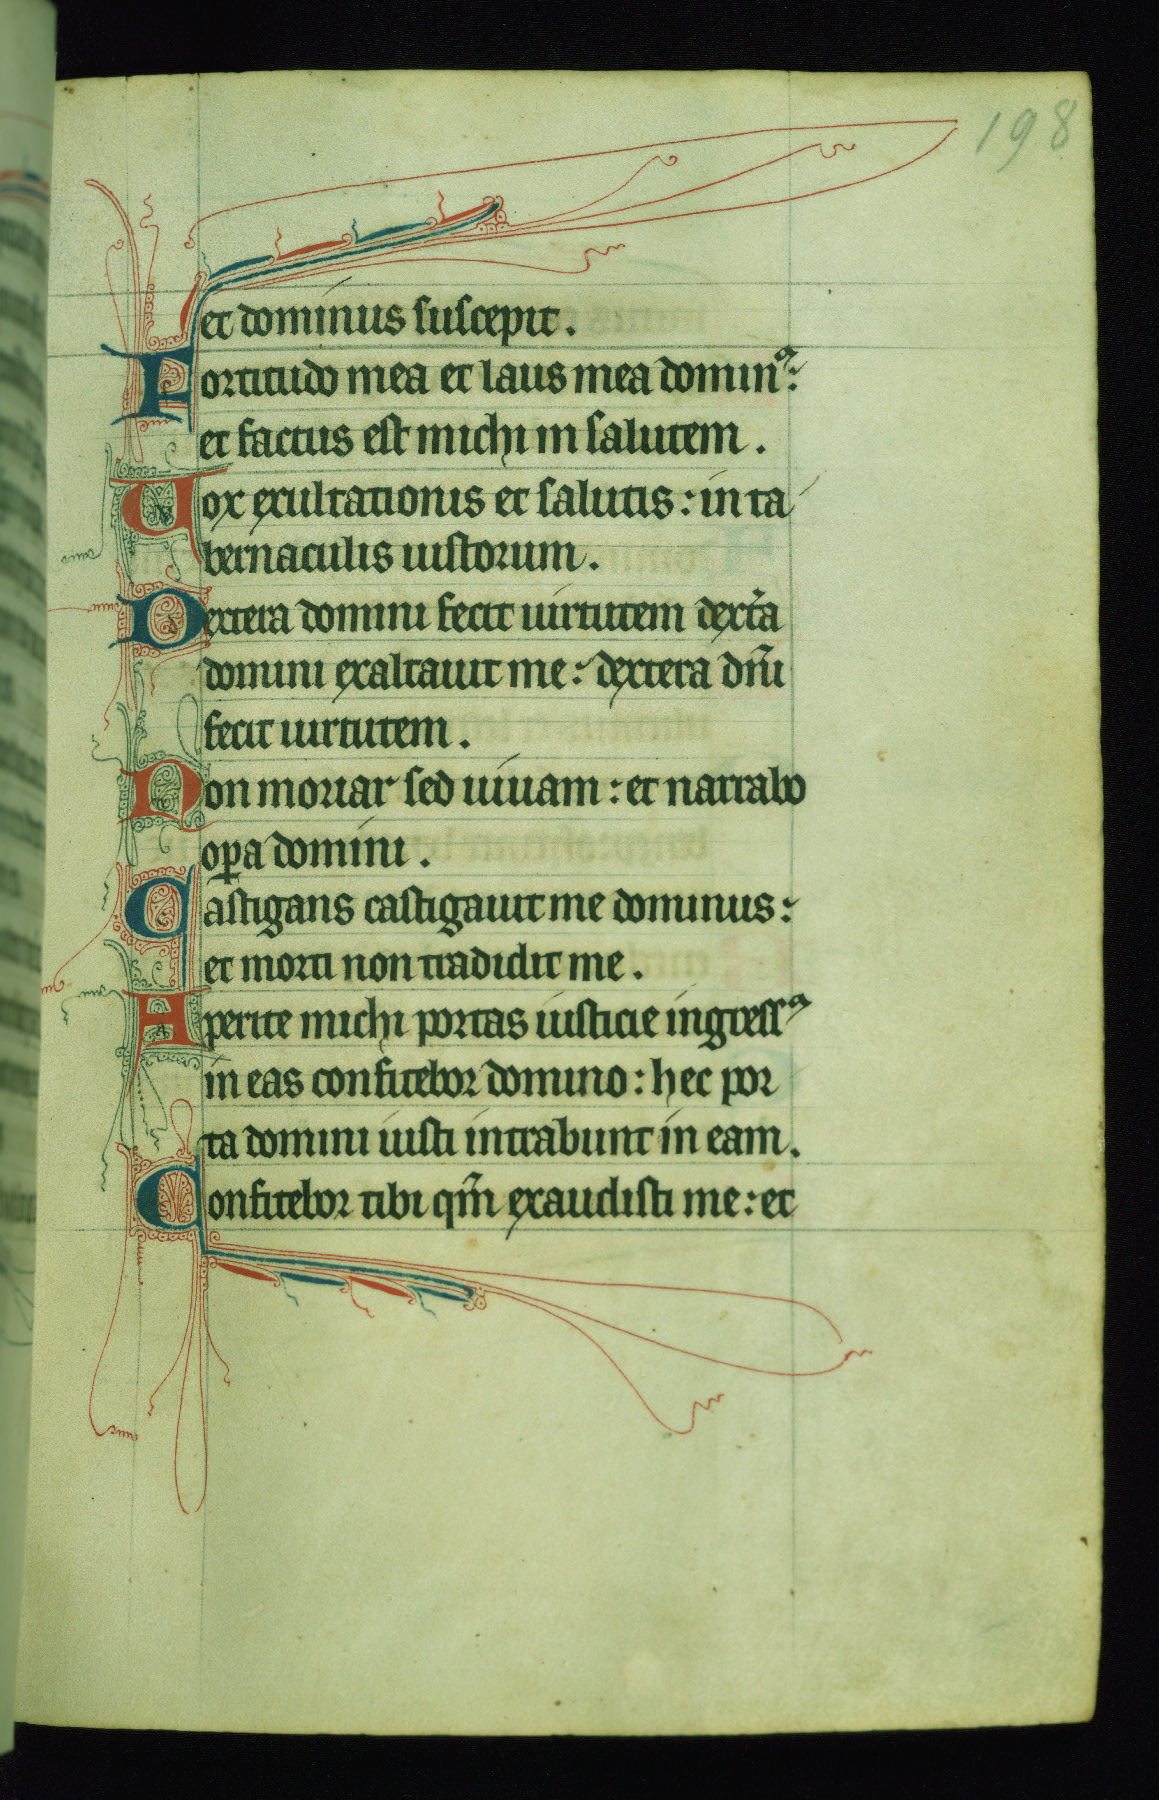 198
et dominus suscepit.
Fortitudo mea et laus mea dominꝰ:
et factus est michi in salutem.
Uox exultationis et salutis: in ta
bernaculis iustorum.
Dextera domini fecit uirtutem dext͛a
domini exaltauit me: dextera dn̄i
fecit uirtutem.
Non moriar sed uiuam: et narrabo
oꝑa domini.
Castigans castigauit me dominus:
et morti non tradidit me.
Aperite michi portas iusticie ingressꝰ
in eas confitebor domino: hec por
ta domini iusti intrabunt in eam.
Confitebor tibi qm̄ exaudisti me: et